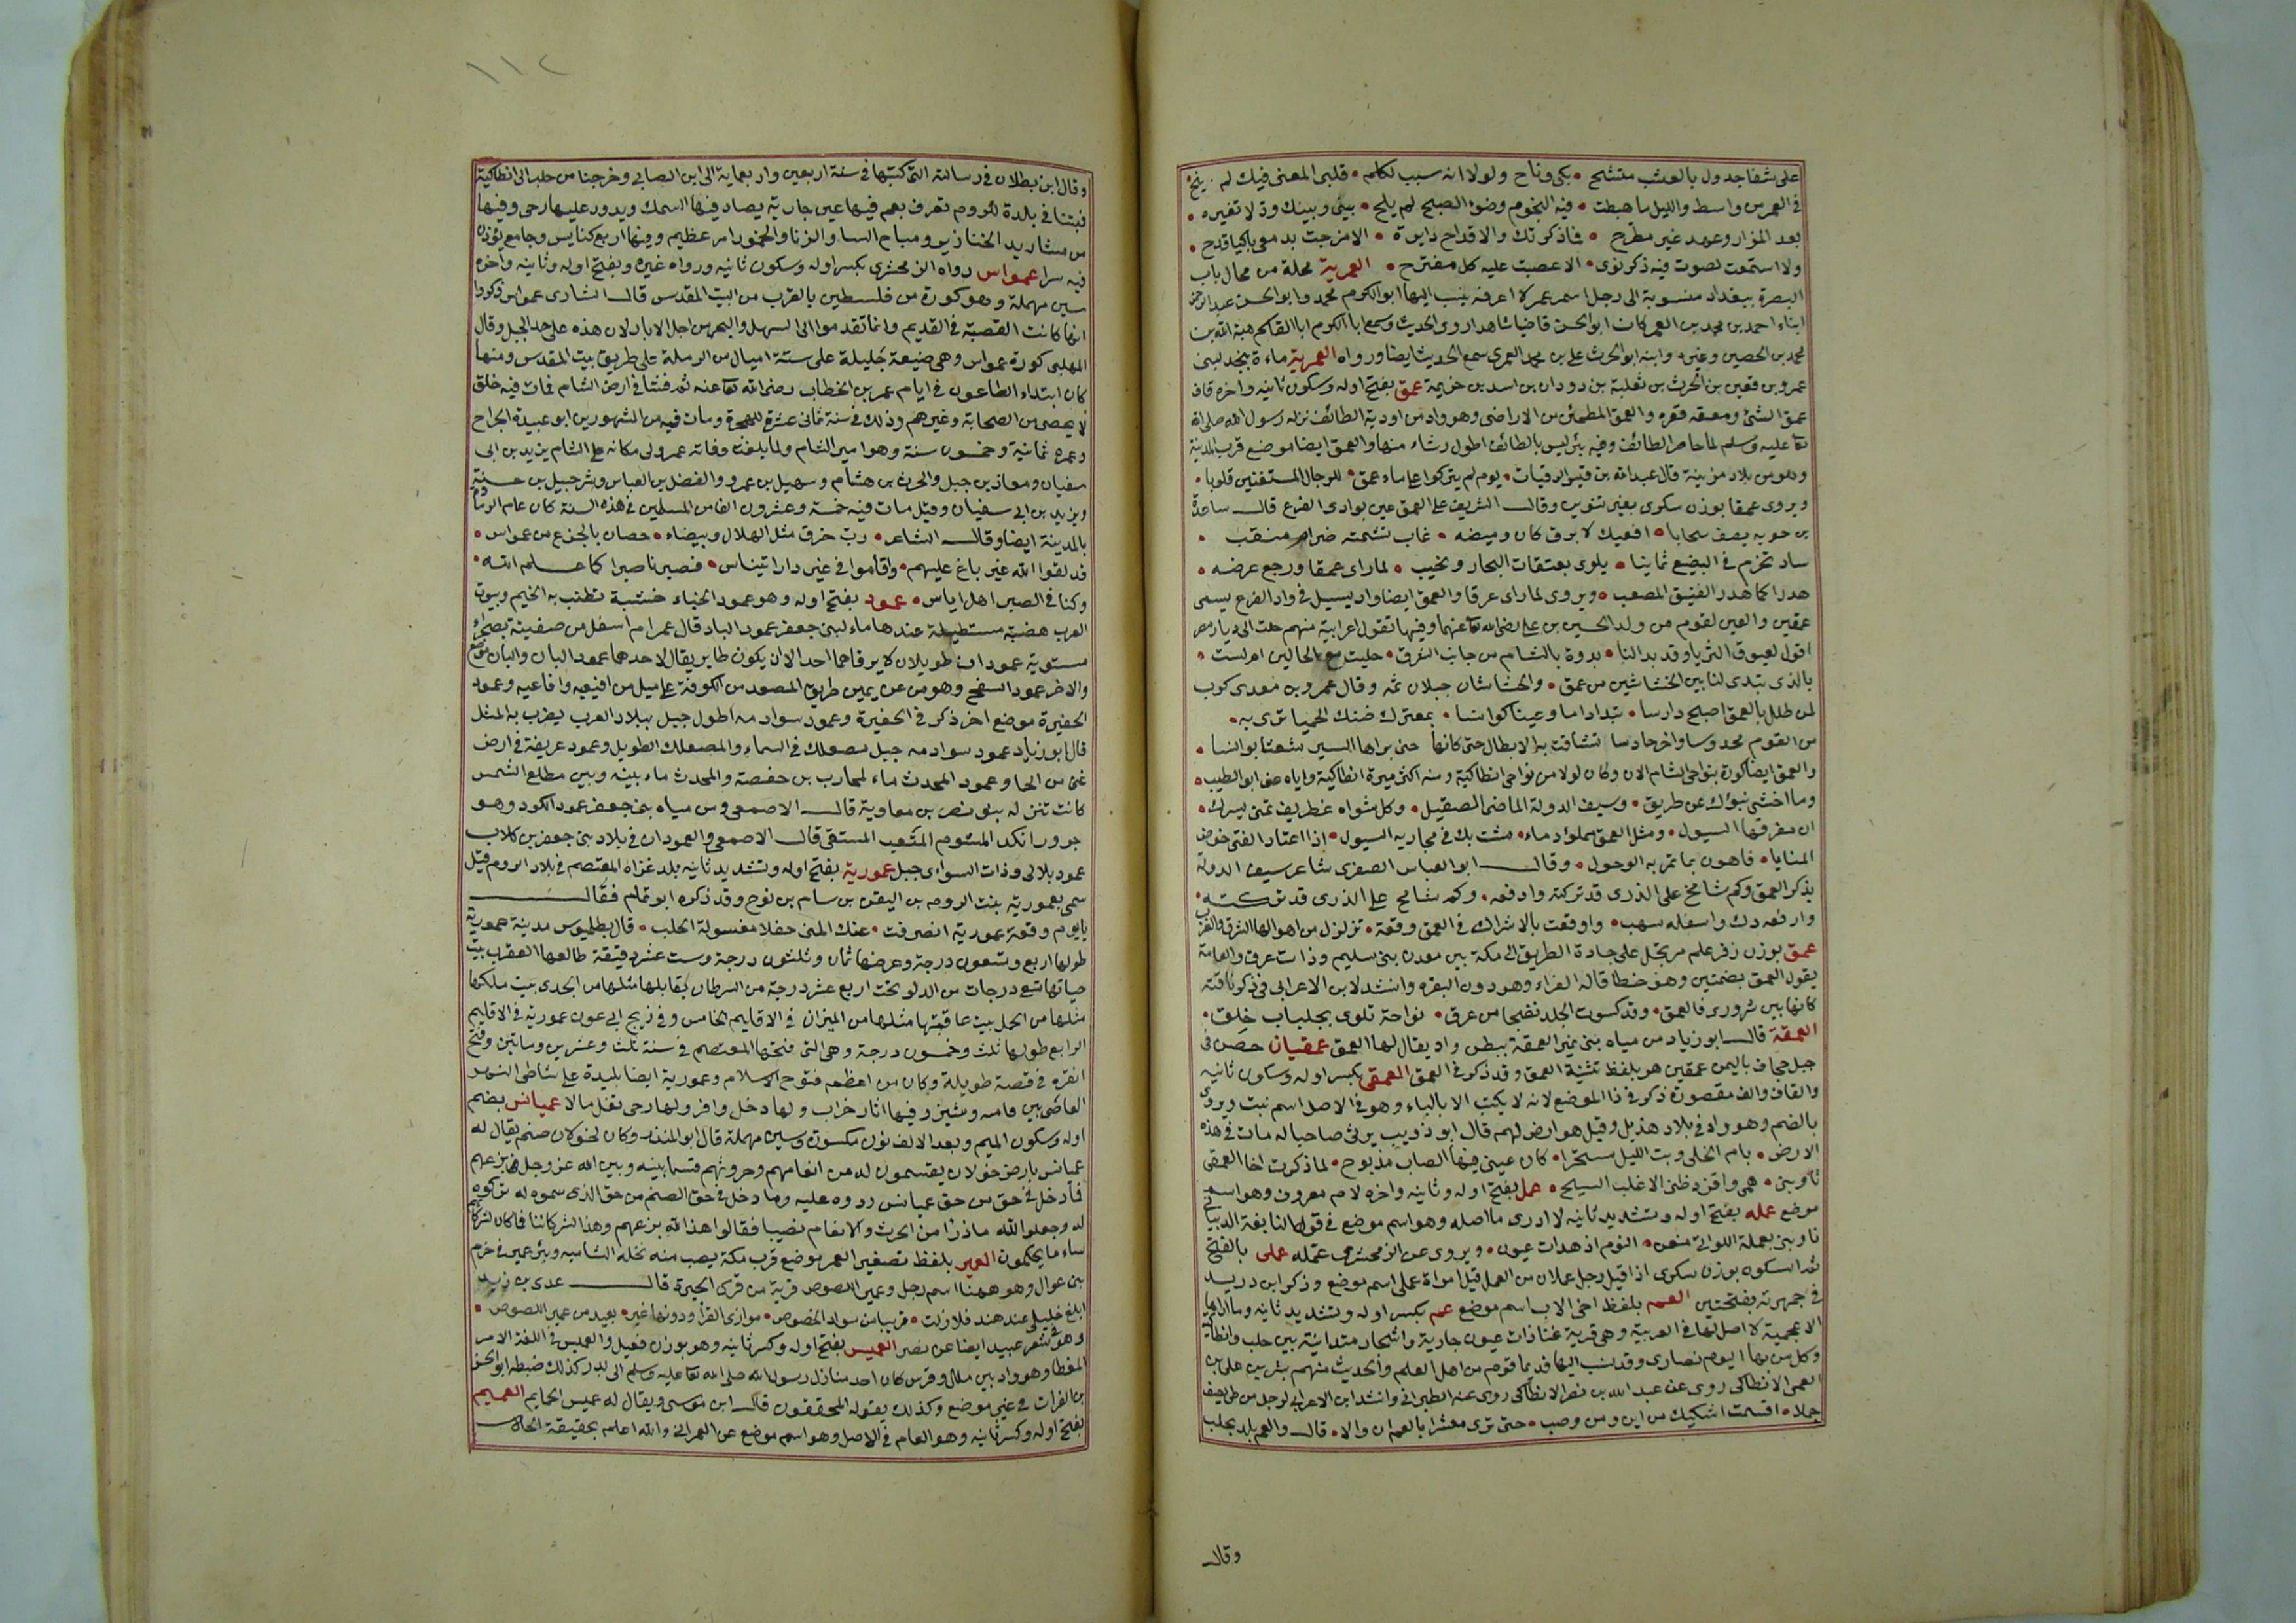 على شفا جدول بالعشب متشح • بكى وناح ولولا انه سبب لكلمه • قلبى المعنى فيك لم ينح
فى العمر من واسط والليل ما هبطت • فيه النجوم وضوء الصبح لم يلح • بينى وبينك ود لا تغيره •
بعد المزار وعهد غير مطرح • فما ذكرتك والاقداح دايرة • الا مزجت بدمعى باكيا قدحى •
ولا استمعت لصوت فيه ذكر نوى • الا عصبت عليه كل مقترح • العمرية محلة من محال باب
البصرة ببغداد منسوبة الى رجل اسمه عمر لا اعرفه ينسب اليها ابو الكرم محمد وابو الحسن عبد الرحمن
ابناء احمد بن محمد بن العمر كان ابو الحسن قاضيا شاهدا روى الحديث وسمع ابا الكرم ابا القاسم هبة الله بن
محمد بن الحصين وغيره وابنه ابو الحرث على بن محمد العمرى سمع الحديث ايضا ورواه العمرية ماءة بنجد لبنى
عمرو بن قعين بن الحرث بن ثعلبة بن دودان بن اسد بن خزيمة عمق بفتح اوله وسكون ثانيه واخره قاف
عمق الشئ ومعقه قعره والعمق المطمئن من الاراضى وهو واد من اودية الطائف نزله رسول الله صلى الله
تعا عليه وسلم لما حاصر الطائف وفيه بئر ليس بالطائف اطول رشاء منها والعمق ايضا موضع قرب المدينة
وهو من بلاد مزينة قال عبد الله بن قيس الرقيات • يوم لم يتركوا على ماء عمق • للرجال المستفتين قلوبا •
ويروى عمقا بوزن سكرى بغير تنوين وقال الشريف على العمق عين بوادى الفرع قال ساعدة
بن جويه يصف سحابا • افعيك لا برق كان وميضه • غاب تشيمه ضرام منقب •
ساد تخرم فى البضيع ثمانيا • يلوى بعيقات البحار ويخيب • لما راى عمقا ورجع عرضه •
هدرا كما هدر الفنيق المصعب • ويروى لما راى عرقا والعمق ايضا واد يسيل فى واد الفرع يسمى
عمقين والعين لقوم من ولد الحسين بن على رضى الله تعا عنهما وفيها تقول اعرابية منهم حلت الى ديار مصر
اقول لعيوق الثريا وقد بدا لنا • بدوة بالشام من جانب الشرق • حليت مع الحالين ام لست •
بالذى تبدى لنا بين الخشاشين من عمق • والخشاشان جبلان ثمه وقال عمرو بن معدى كرب
لمن طلل بالعمق اصبح دارسا • تبدل اراما وعينا كوانسا • بمعترك ضنك الحميا ترى به •
من القوم محدوسا واخر حادسا تشاقت به الابطال حتى كانها حنى براها السير شعثا بوائسا •
والعمق ايضا كورة بنواحى الشام الان وكان اولا من نواحى انطاكية ومنه اكثر ميرة انطاكية واياه عنى ابو الطيب •
وما اخشى نبوك عن طريق • وسيف الدولة الماضى الصقيل • وكل شواه غطريف تمنى لسيرك •
ان مفرقها السيول • ومثل العمق مملو دماء • مشت بك فى مجاريه السيول • اذا اعتاد الفتى خوض
المنايا • فاهون ما تمر به الوحول • وقال ابو العباس الصفرى شاعر سيف الدولة
يذكر العمق وكم شامخ على الذرى قد تركته وادفعه • وكم شامخ على الذرى قد تركته •
وارفعه دك واسفله سهب • واوقعت بالاشراك فى العمق وقعة • تزلزل من اهوالها الشرق والغرب
عمق بوزن زفر علم مرتجل على جادة الطريق الى مكة بين معدن بنى سليم وذات عرق والعامة
يقول العمق بضمتين وهو خطا قاله الفراء وهو دون النقره وانشد لابن الاعرابى فى ذكر ناقته
كانها بين شرورى فالعمق • وقد كسوت الجلد نضحا من عرق • نواحة تلوى بجلباب خلق •
العمقة قال ابو زياد من مياه بنى نمير العمقة ببطن واد يقال لها العمق عمقيان حصن فى
جبل جحاف باليمن عمقين هو بلفظ تثنية العمق وقد ذكر فى العمق العمقى بكسر اوله وسكون ثانيه
والقاف والف مقصورة ذكر فى ذا الموضع لانه لا يكتب الا بالياء وهو فى الاصل اسم نبت ويروى
بالضم وهو واد فى بلاد هذيل وقيل هو ارض لهم قال ابو ذويب يرثى صاحبا له مات فى هذه
الارض • بام الخلى وبت الليل مستحرا • كان عينى فيها الصاب مذبوح • لما ذكرت اخا العمقى
تاوبنى • همى وافرد ظنى الاغلب السيح • عمل بفتح اوله وثانيه واخره لام معروف وهو اسم
موضع عمله بفتح اوله وتشديد ثانيه لا ادرى ما اصله وهو اسم موضع فى قول النابغة الذبيانى
ناوبنى بعملة اللواتى منعن • النوم اذ هدات عيون • ويروى عن الزمخشرى عتمله عملى بالفتح
ثم السكون بوزن سكرى اذا قيل رجل عملان من العمل قيل امراة عملى اسم موضع وذكر ابن دريد
فى جمهرته بفتحتين العم بلفظ اخى الاب اسم موضع عم بكسر اوله وتشديد ثانيه وما اراها
الا عجمية لا اصل لها فى العربية وهى قرية غناء ذات عيون جارية واشجار متدانية بين حلب وانطاكية
وكل من بها اليوم نصارى وقد نسب اليها قديما قوم من اهل العلم والحديث منهم بشر بن على بن
العمى الانطاكى روى عن عبد الله بن نصر الانطاكى روى عنه الطبرانى وانشد ابن الاعرابى لرجل من طى يصف
جملا • اقسمت اشكيك من اين ومن وصب • حتى ترى معشرا بالعم ازوالا • قال والعم بلد بحلب
وقال
١١٢
وقال ابن بطلان فى رسالته التى كتبها فى سنة اربعين واربعماية الى ابن الصابى وخرجنا من حلب الى انطاكية
فبتنا فى بلدة للروم تعرف بعم فيها عين جارية يصاد فيها السمك ويدور عليها رحى وفيها
من مشاريد الخنازير ومباح النسا والزنا والخمور امر عظيم وفيها اربع كنايس وجامع يؤذن
فيه سرا عمواس رواه الزمخشرى بكسر اوله وسكون ثانيه ورواه غيره وبفتح اوله وثانيه واخره
سين مهملة وهو كورة من فلسطين بالقرب من البيت المقدس قال البشارى عمواس ذكروا
انها كانت القصبة فى القديم وانما تقدموا الى السهل والبحر من اجل الابار لان هذه على حد الجبل وقال
المهلبى كورة عمواس وهى ضيعة جليلة على ستة اميال من الرملة على طريق بيت المقدس ومنها
كان ابتداء الطاعون فى ايام عمر بن الخطاب رضى الله تعا عنه ثم فشا فى ارض الشام فمات فيه خلق
لا يحصى من الصحابة وغيرهم وذلك فى سنة ثمانى عشرة للهجرة ومات فيه من المشهورين ابو عبيدة الجراح
وعمره ثمانية وخمسون سنة وهو امير الشام ولما بلغت وفاته عمر ولى مكانه على الشام يزيد بن ابى
سفيان ومعاذ بن جبل والحرث بن هشام وسهيل بن عمرو والفضل بن العباس وشرحبيل بن حسنة
ويزيد بن ابى سفيان وقيل مات فيه خمسة وعشرون الفا من المسلمين فى هذه السنة كان عام الرمادة
بالمدينة ايضا وقال الشاعر • رب خرق مثل الهلال وبيضاء • حصان بالجزع من عمواس •
قد لقوا الله غير باغ عليهم • واقاموا فى غير دار ائتناس • فصبرنا صبرا كما علم الله •
وكنا فى الصبر اهل اياس • عمود بفتح اوله وهو عمود الخباء خشبة تطنب به الخيم وبيوت
العرب هضبة مستطيلة عندها ماء لبنى جعفر عمود البان قال عرام اسفل من صفينة بصحراء
مستوية عمودان طويلان لا يرقاهما احد الا ان يكون طاير يقال لاحدهما عمود البان والبان موضع
والاخر عمود السفح وهو من عن يمين طريق المصعد من الكوفة على ميل من افيعيه وافاعيه وعمود
الحفيرة موضع اخر ذكر فى الحفيرة وعمود سوادمه اطول جبل ببلاد العرب يضرب به المثل
قال ابو زياد عمود سوادمه جبل مصعلك فى السماء والمصعلك الطويل وعمود عريفة فى ارض
غنى من الحما وعمود المحدث ماء لمحارب بن خصفة والمحدث ماء بينه وبين مطلع الشمس
كانت تنزله بنو نصر بن معاوية قال الاصمعى ومن مياه بنى جعفر عمود الكود وهو
جرور انكد المشوم المتعب المستقى قال الاصمعى والعمودان فى بلاد بنى جعفر بن كلاب
عمود بلال وذات السواسى جبل عمورية بفتح اوله وتشديد ثانيه بلد غزاه المعتصم فى بلاد الروم قيل
سمى بعمورية بنت الروم بن اليفز بن سام بن نوح وقد ذكره ابو تمام فقال
يا يوم وقعة عمورية انصرفت • عنك المنى حفلا معسولة الحلب • قال بطليموس مدينة عمورية
طولها اربع وتسعون درجة وعرضها ثمان وثلثون درجة وست عشرة دقيقة طالعها العقرب بيت
حياتها تسع درجات من الدلو تحت اربع عشر درجة من السرطان يقابلها مثلها من الجدى بيت ملكها
مثلها من الحمل بيت عاقبتها مثلها من الميزان فى الاقليم الخامس وفى زيج ابى عون عمورية فى الاقليم
الرابع طولها ثلث وخمسون درجة وهى التى فتحها المعتصم فى سنة ثلث وعشرين ومائتين وفتح
انقره فى قصة طويلة وكان من اعظم فتوح الاسلام وعمورية ايضا بليدة على شاطى النهر
العاصى بين فامية وشيزر فيها اثار خراب ولها دخل وافر ولها رحى تغل مالا عميانس بضم
اوله وسكون الميم وبعد الالف نون مكسورة وسين مهملة قال ابو المنذر وكان لخولان صنم يقال له
عميانس بارض خولان يقتسمون له من انعامهم وحروثهم قسما بينه وبين الله عز وجل بزعمهم
فما دخل فى حق من حق عميانس ردوه عليه وما دخل فى حق الصنم من حق الذى سموه له تركوه
له وجعلوا لله مما ذرا من الحرث والانعام نصيبا فقالوا هذا لله بزعمهم وهذا لشركائنا فما كان لشركائهم
ساء ما يحكمون العمير بلفظ تصغير العمر موضع قرب مكة يصب منه نخلة الشاميه وبئر عمير فى حزم
بنى عوال وهو ههنا اسم رجل وعمير اللصوص قرية من قرى الحيرة قال عدى بن زيد
ابلغ خليلى عند هند فلا زلت • قريبا من سواد الخصوص • موازى القرا ودونها غير • بعيد من عمير اللصوص •
وهو فى شعر عبيد ايضا عن نصر العميس بفتح اوله وكسر ثانيه وهو بوزن فعيل والعميس فى اللغة الامر
المغطا وهو واد بين ملل وفرش كان احد منازل رسول الله صلى الله تعا عليه وسلم الى بدر كذلك ضبطه ابو الحسن
بن الفرات فى غير موضع وكذلك يقوله المحققون قال ابن موسى ويقال له عميس الحمايم العميم
بفتح اوله وكسر ثانيه وهو العام فى الاصل وهو اسم موضع عن العمرانى والله اعلم بحقيقة الحال